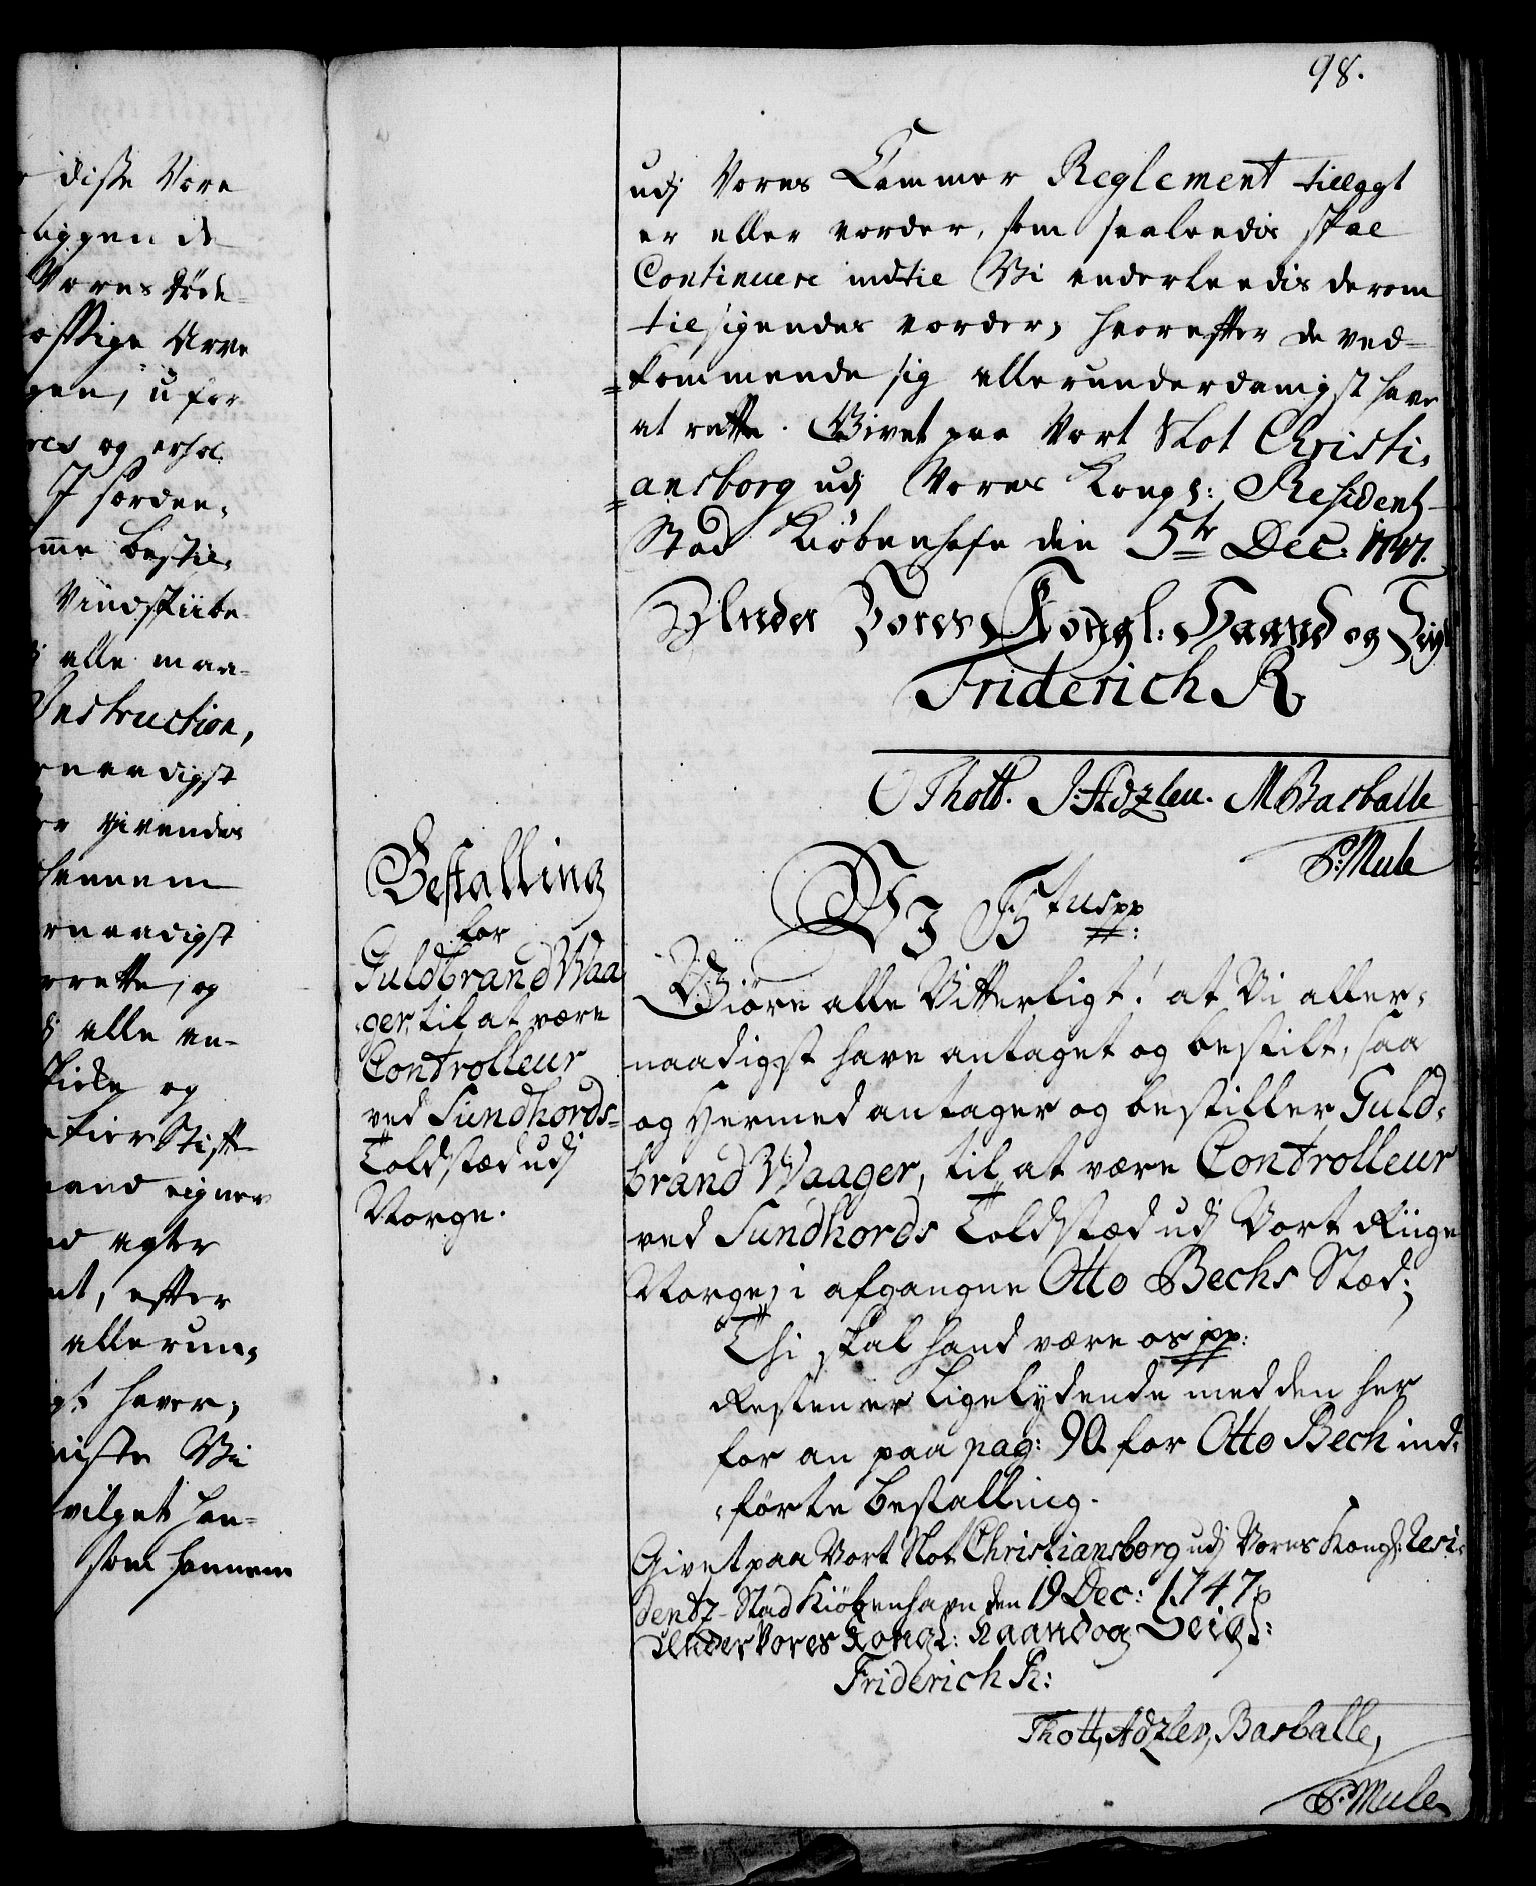 disse Vore
liggende
Vores Føde-
Arve
ufor
og erhol
I sørdee,
me bestil,
Vindskiibe-
alle maa-
Instruction,
naadigst
givendes
hannem
naadigst
rette, og
alle an-
og
Stift
eigner
agter
efter
allerun,
haver,
Vi
vilget han-
som hannem
98.
udj Vores Cammer Reglement tillagt
er eller vorder, som saaleedis skal
Continuere indtil Vi anderleedis derom
tilsigendes vorder, hvorefter de ved-
kommende sig allerunderdanigst have
at rette. Givet paa Vort Slot Christi,
ansborg udj Vores Kongl: Residentz-
Stad Kiøbenhafn den 5te Dec. 1747.
Under Vores Kongl: Haand og Zigl
Friderich R
O Thott. J. Adzleu. M Basballe
P: Mule
Bestalling
for
Guldbrand Waa
ger, til at være
Controlleur
ved Sundhords-
Toldstæd udj
Norge.
VJ F 5tus pp:
Giøre alle Vitterligt! at Vi aller,
naadigst have antaget og bestilt, saa
og Hermed antager og bestiller Guld,
brand Waager, til at være Controlleur
ved Sundhords Toldstæd udj Vort Riige
Norge, i afgangne Otto Bechs Stæd;
Thi skal hand være os pp:
Resten er Ligelydende med den her
for an paa pag: 90. for Otto Bech ind,
førte Bestalling.
Givet paa Vort Slot Christiansborg udj Vores Kongl: Resi,
dentz-Stad Kiøbenhavn den 19 Dec: 1747
Under Vores Kongl: Haand og Seigl:
Friderich R:
Thott, Adzleu, Basballe,
P: Mule